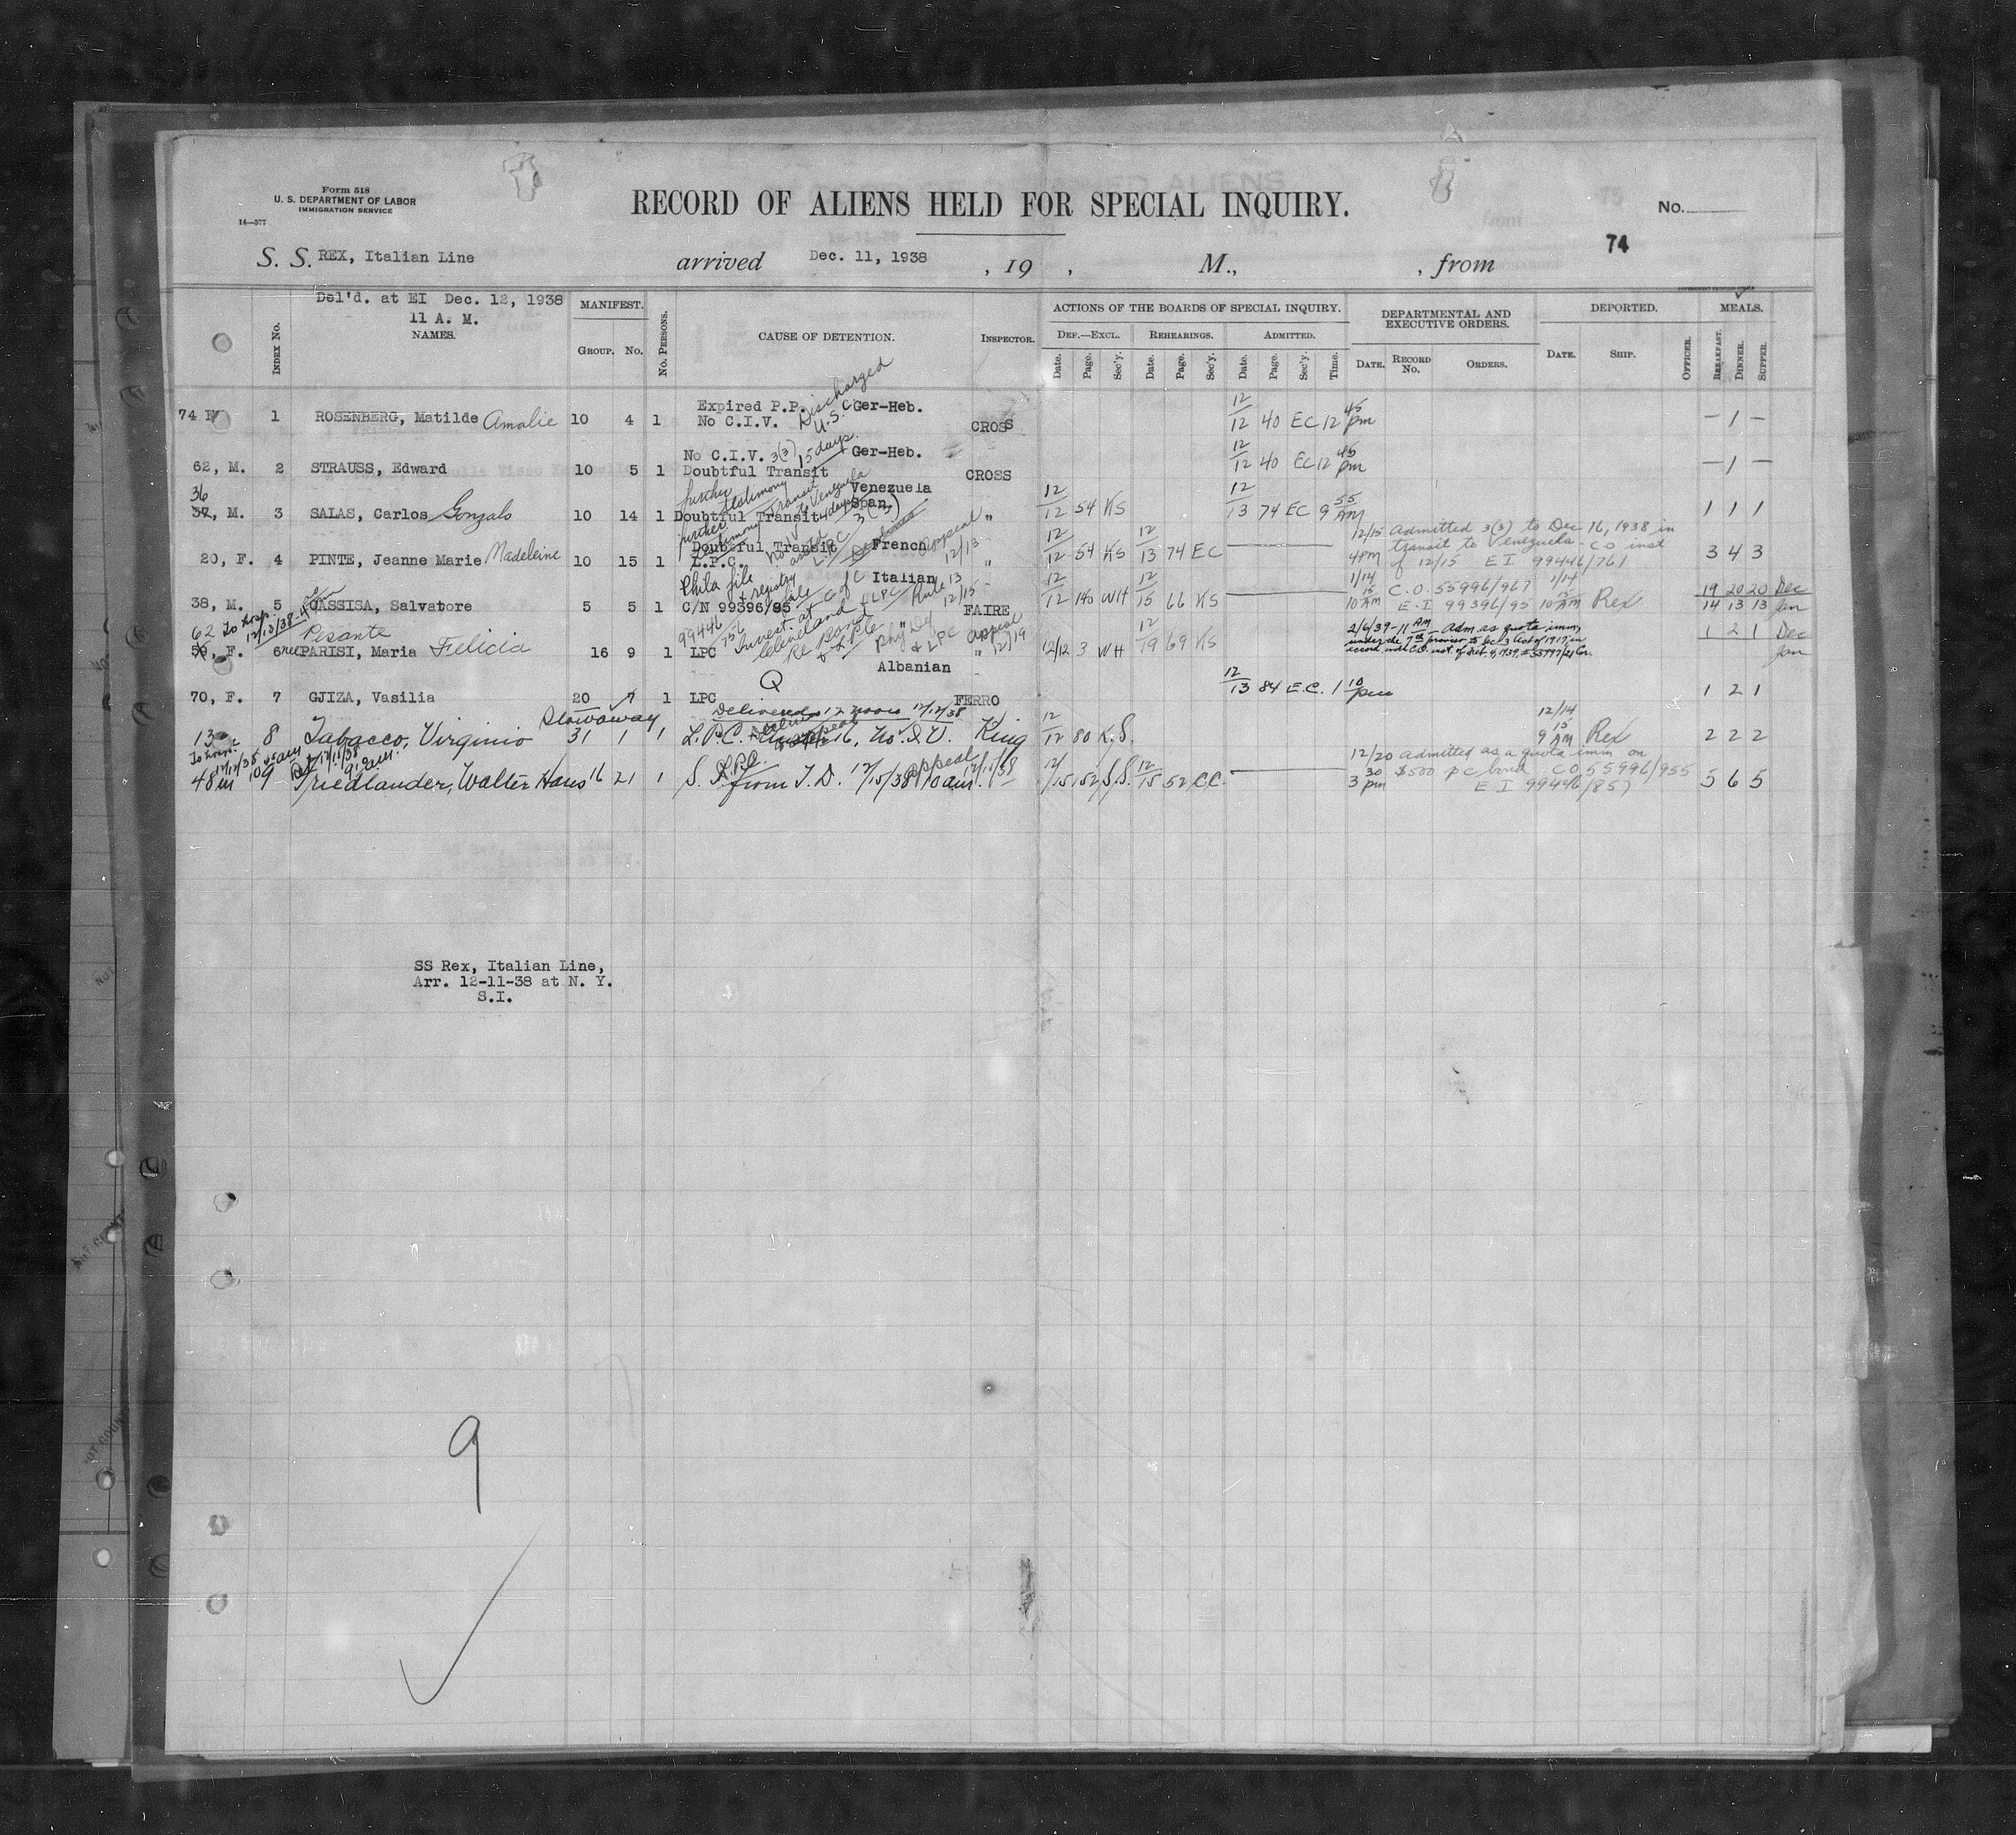 Form 518
U. S. DEPARTMENT OF LABOR
IMMIGRATION SERVICE
14—577
RECORD OF ALIENS HELD FOR SPECIAL INQUIRY.
No.
74
S. S. REX, Italian Line arrived Dec. 11, 1938 , 19 , M., , from
Del'd. at EI Dec. 12, 1938
11 A. M.
NAMES.
INDEX No.
MANIFEST.
GROUP. No.
No. PERSONS.
CAUSE OF DETENTION.
INSPECTOR.
ACTIONS OF THE BOARDS OF SPECIAL INQUIRY.
DEF.—EXCL. REHEARINGS. ADMITTED.
Date. Page. Sec'y. Date. Page. Sec'y. Date. Page. Sec'y. Time.
DEPARTMENTAL AND
EXECUTIVE ORDERS.
DATE. RECORD No. ORDERS.
DEPORTED.
DATE. SHIP. OFFICER.
MEALS.
BREAKFAST. DINNER. SUPPER.
Discharged
U.S.C.
Expired P.P. Ger-Heb.
74 F 1 ROSENBERG, Matilde Amalie 10 4 1 No C.I.V. CROSS 12/12 40 EC 12 45 pm — 1 —
No C.I.V. 3(3) 15 days. Ger-Heb.
62, M. 2 STRAUSS, Edward 10 5 1 Doubtful Transit CROSS 12/12 40 EC 12 45 pm — 1 —
further testimony Transit to Venezuela 4 days 3(3)
Venezuela
Span.
36
37, M. 3 SALAS, Carlos Gonzalo 10 14 1 Doubtful Transit " 12/12 54 KS 12/13 74 EC 9 55 AM 1 1 1
further testimony
Doubtful Transit French
appeal 12/13
20, F. 4 PINTE, Jeanne Marie Madeleine 10 15 1 L.P.C. " 12/12 54 KS 12/13 74 EC 12/15 Admitted 3(3) to Dec 16, 1938 in
transit to Venezuela - CO inst
4PM of 12/15 E I 99446/761 3 4 3
Phila file + registry file C of C Italian
Rule 13 12/15
38, M. 5 CASSISA, Salvatore 5 5 1 C/N 99396/95 FAIRE 12/12 140 WH 12/15 66 KS 1/14 C.O. 55996/967 1/14
10 15 AM E.I 99396/95 10 15 AM Rex 19 20 20 Dec
14 13 13 Jan
99446/756 Invest. at Cleveland + LPC
To Hosp. 12/13/38
62
Pesante
59, F. 6 PARISI, Maria Felicia 16 9 1 LPC Phy Def & LPC appeal 12/19 " 12/12 3 WH 12/19 69 KS 2/6/39-11 AM Adm as quota imm,
under the 7th proviso to Sec. 3 Act of 1917, in
1 2 1 Dec
Jan
Albanian
Q
70, F. 7 GJIZA, Vasilia 20 7 1 LPC FERRO 12/13 84 E.C. 1 10 pm 1 2 1
Delivered 12 noon 12/12/38
Stowaway
13 8 Tabacco, Virginio 31 1 1 L.P.C. 16, No. I.V. King 12/12 80 K.S. 12/14
9 15 AM Rex 2 2 2
L.P.C. appeal 12/15/38
48 m 9 Friedlander, Walter Hans 16 21 1 S. I. from T. D. 12/15/38 10 am. 12/15 152 S.S. 12/15 52 C.C. 12/20 admitted as a quota imm on
3 30 pm $500 p c bond CO 55996/955
E I 99446/857 5 6 5
SS Rex, Italian Line,
Arr. 12-11-38 at N. Y.
S.I.
9